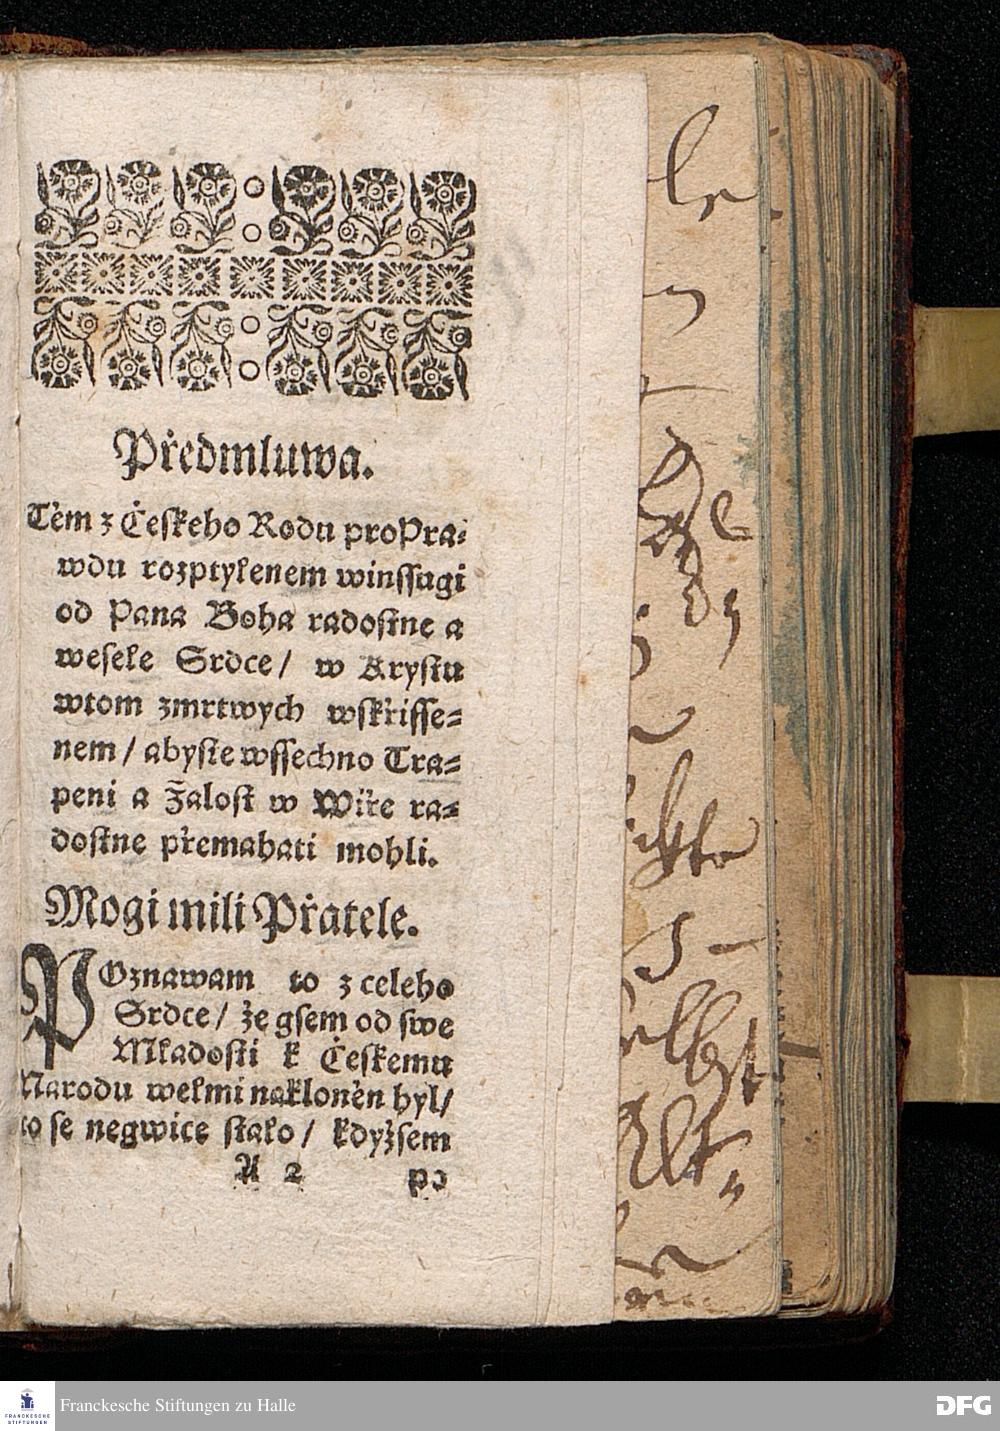 Předmluwa.
Tèm z Ċeſkeho Rodu proPra⸗
wdu rozptylenem winſſugi
od Pana Boha radoſtne a
weſele Srdce/ w Kryſtu
wtom zmrtwych wſkřiſſe⸗
nem/ abyſte wſſechno Tra⸗
peni a Žaloſt w Wiře ra⸗
doſtne přemahati mohli.
Mogi mili Přatele.
POznawam to z celeho
Srdce/ že gſem od ſwe
Mladoſti k Ċeſkemu
Narodu welmi naklonèn byl/
to ſe negwice ſtalo/ kdyžſem
A 2 po
Franckesche Stiftungen zu Halle
FRANCKESCHE
STIFTUNGEN
DFG